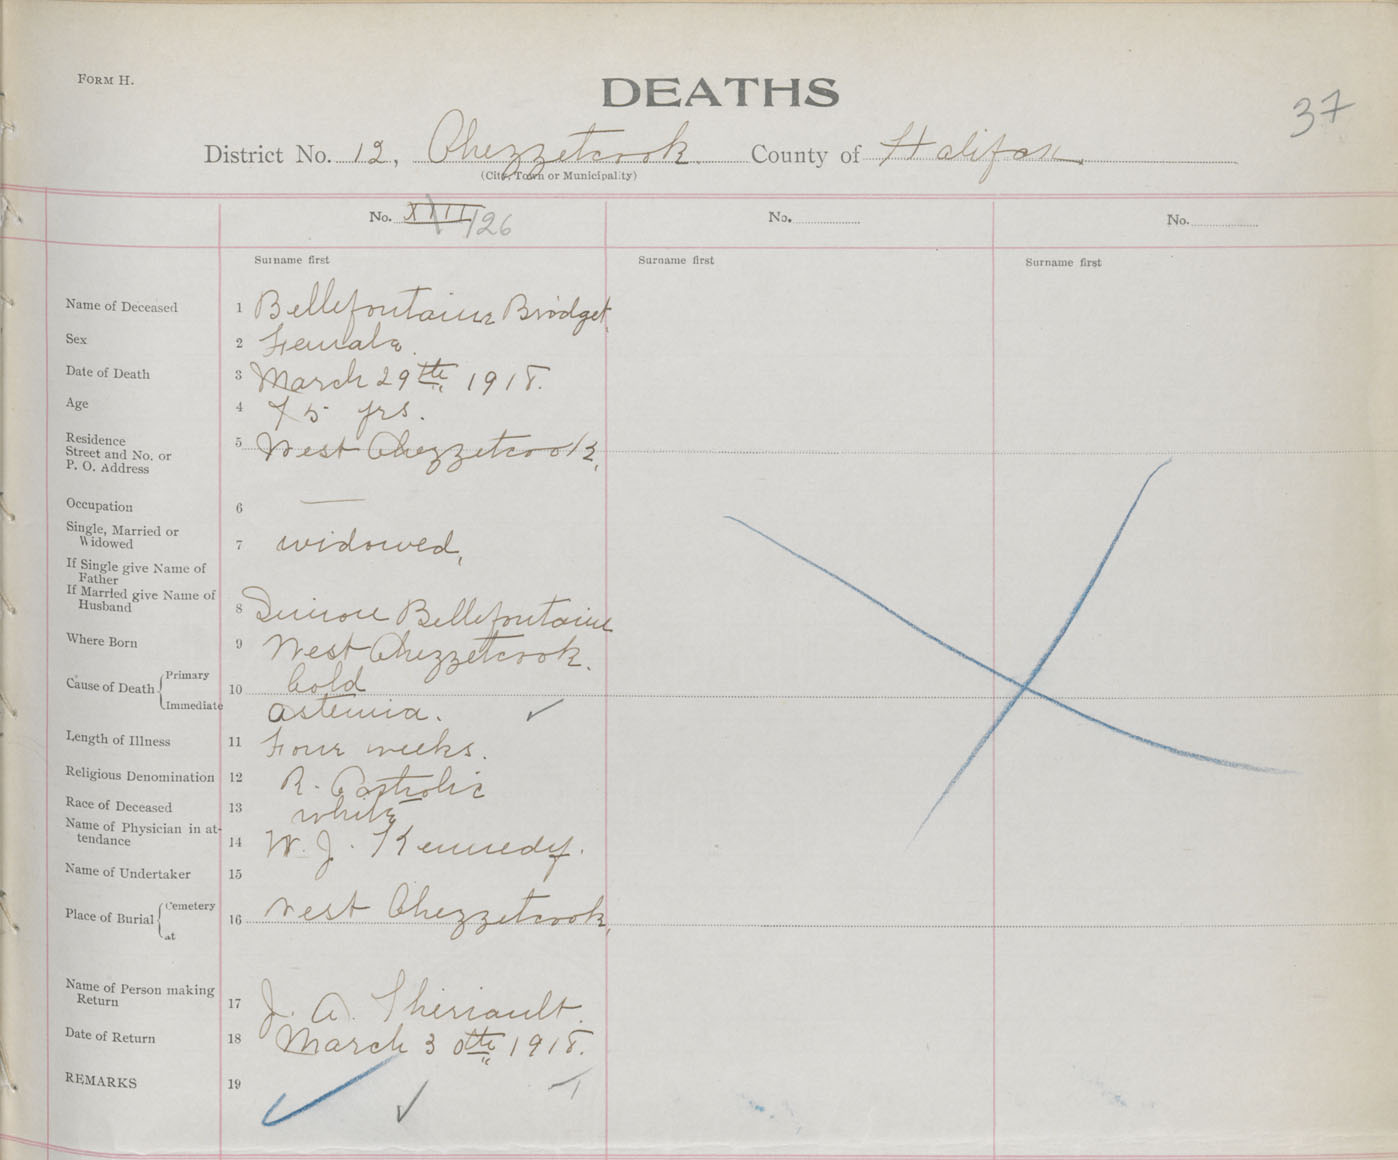 FORM H.
DEATHS
37
District No. 12, Chezzetcook. County of Halifax.
(City, Town or Municipality)
No. XIII 126 No. No.
Surname first Surname first Surname first
Name of Deceased 1 Bellefontaine Bridget
Sex 2 Female.
Date of Death 3 March 29th 1918.
Age 4 75 yrs.
Residence
Street and No. or
P. O. Address
5 West Chezzetcook,
Occupation 6 —
Single, Married or
Widowed
7 widowed,
If Single give Name of
Father
If Married give Name of
Husband
8 Bellefontaine
Where Born 9 West Chezzetcook.
Cause of Death { Primary
Immediate
10 Cold
astemia. ✓
Length of Illness 11 Four weeks.
Religious Denomination 12 R. Catholic
Race of Deceased 13 white
Name of Physician in at-
tendance
14 W. J. Kennedy.
Name of Undertaker 15
Place of Burial { Cemetery
at
16 West Chezzetcook,
Name of Person making
Return
17 J. A. Theriault.
Date of Return 18 March 30th 1918.
REMARKS 19